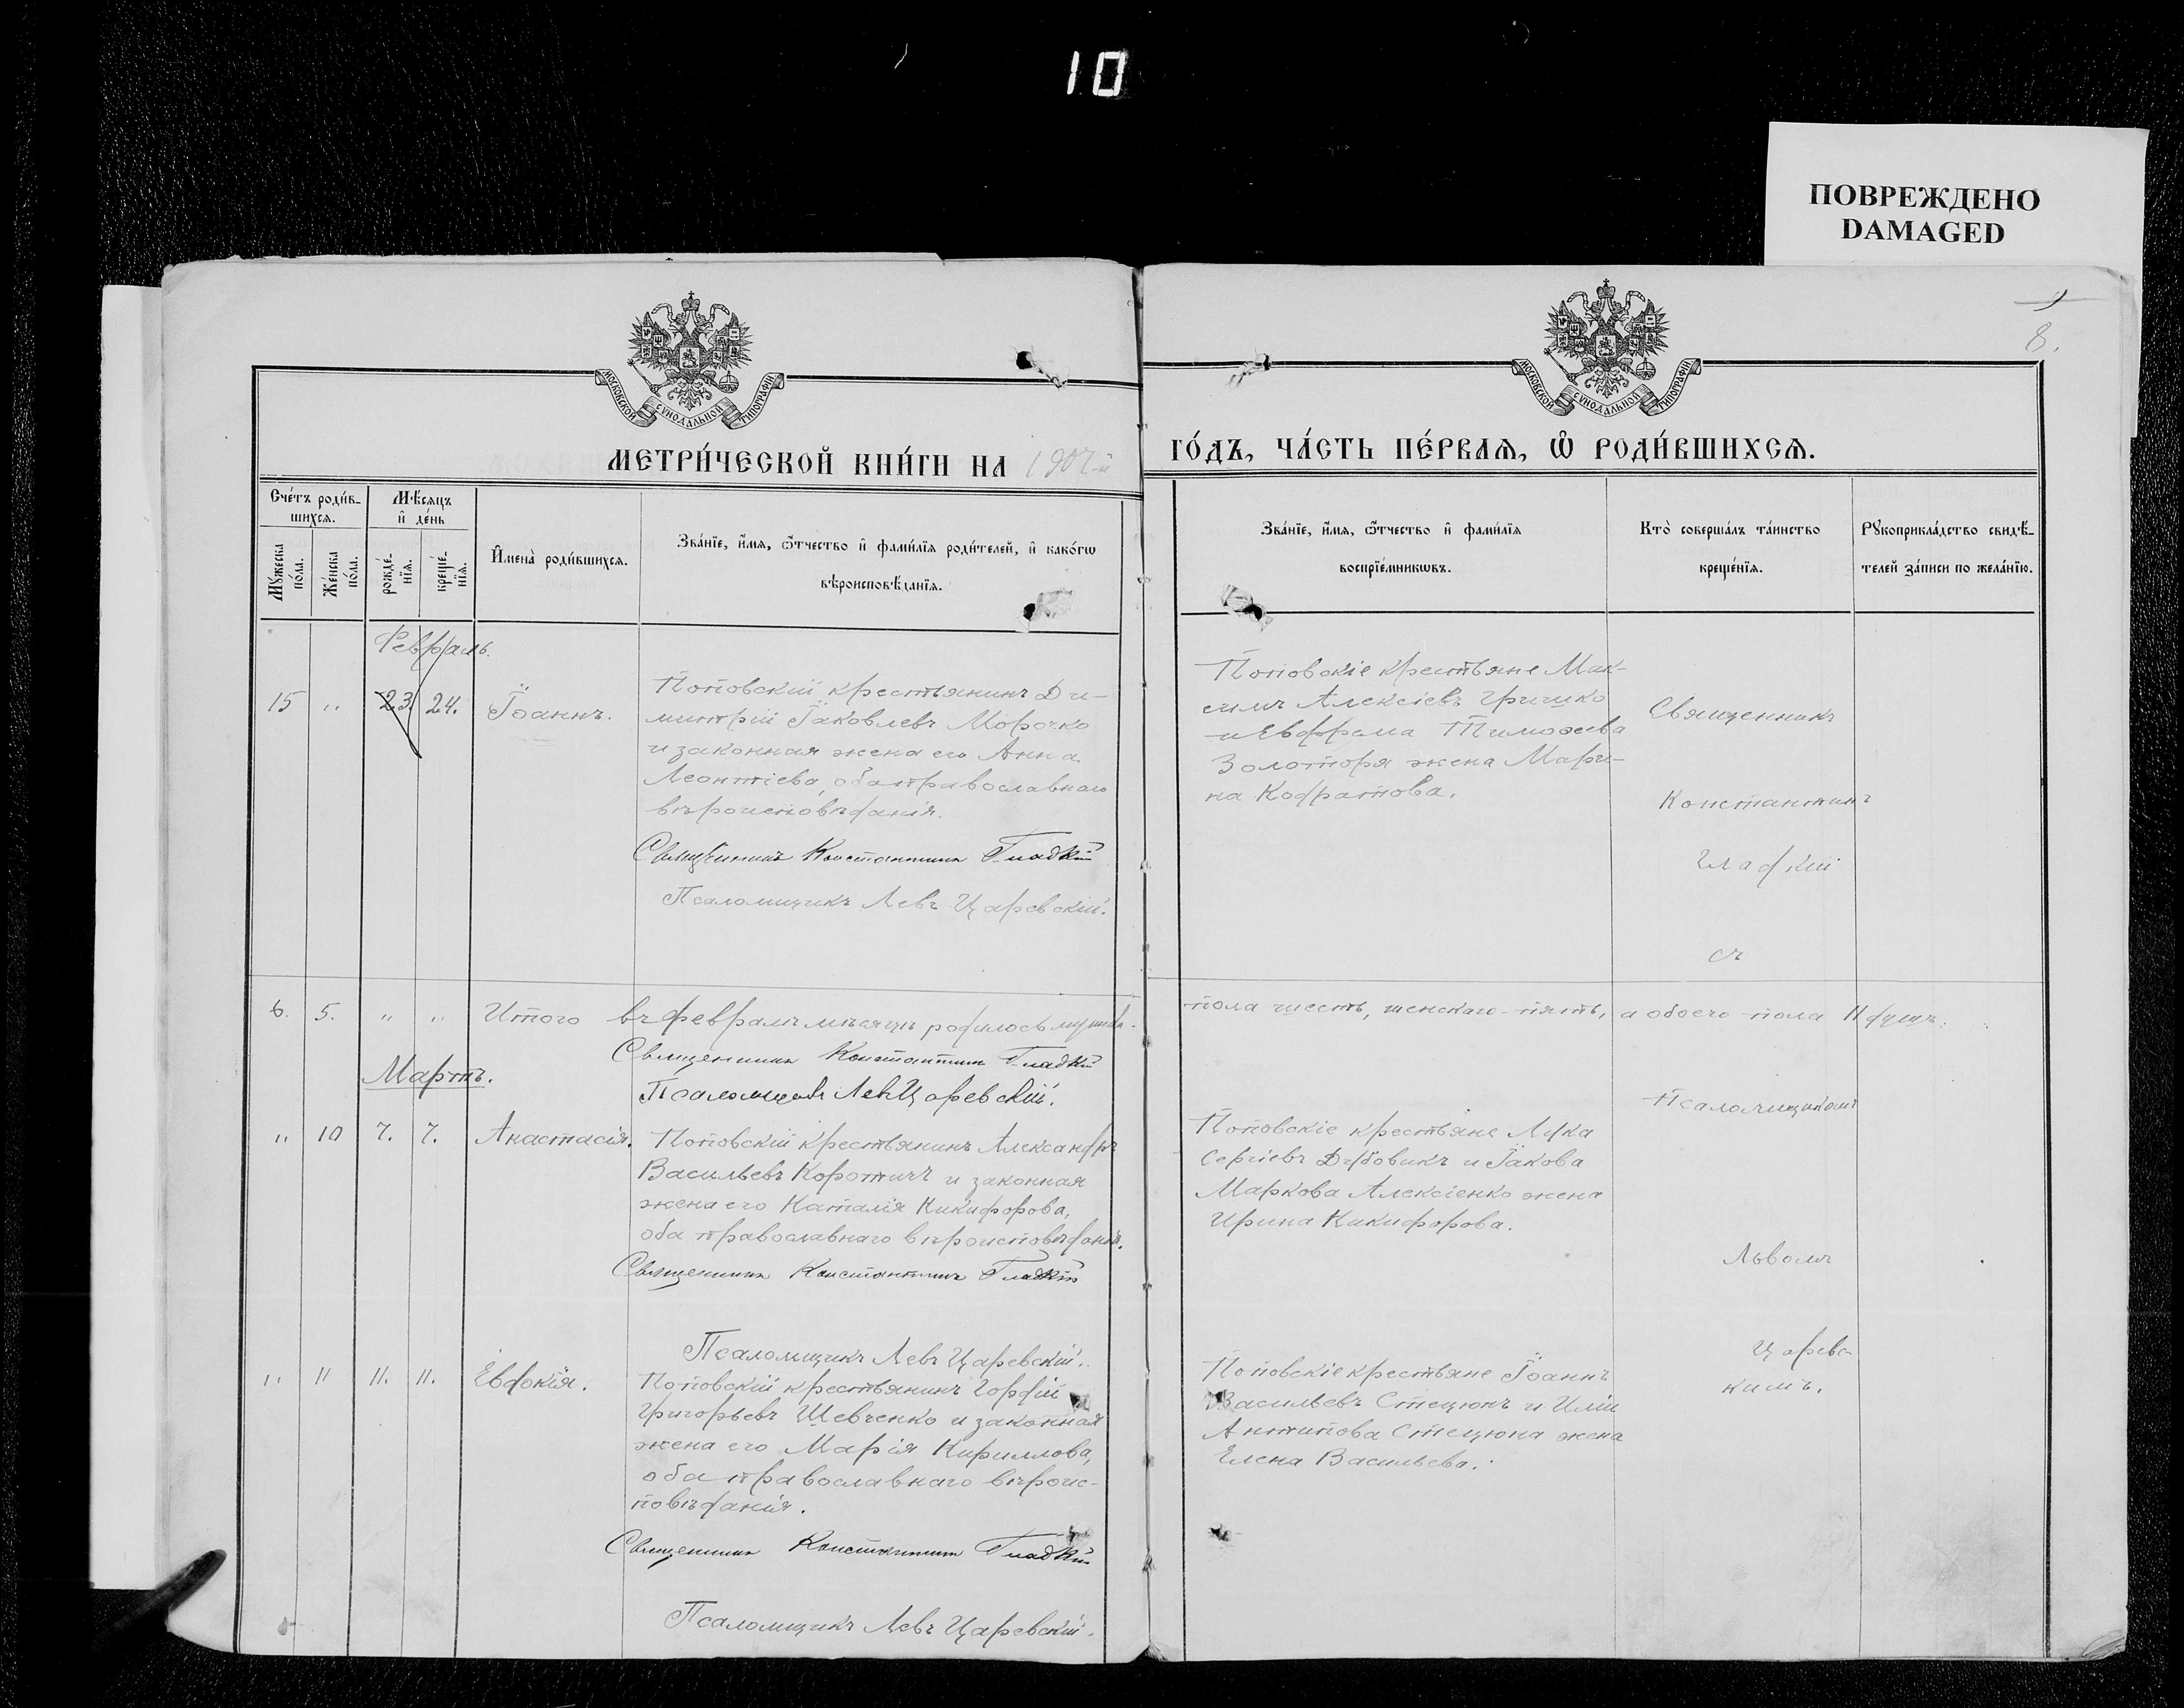 10
ПОВРЕЖДЕНО
DAMAGED
8.
МОСКОВСКОЙ СУНОДАЛЬНОЙ ТИПОГРАФІИ
МОСКОВСКОЙ СУНОДАЛЬНОЙ ТИПОГРАФІИ
МЕТРИ́ЧЕСКОЙ КНИ́ГИ НА 1907-й
ГО́ДЪ, ЧА́СТЬ ПЕ́РВАѦ, Ѡ҆ РОДИ́ВШИХСѦ.
Сче́тъ роди́в-
шихсѧ.
Мꙋ́жеска
по́ла.
Же́нска
по́ла.
Мѣ́сѧцъ
и҆ де́нь
рожде́-
нїѧ.
креще́-
нїѧ.
И҆мена̀ роди́вшихсѧ.
Зва́нїе, и҆́мѧ, ѻ҆́тчество и҆ фами́лїѧ роди́телей, и҆ како́гѡ
вѣроисповѣ́данїѧ.
Зва́нїе, и҆́мѧ, ѻ҆́тчество и҆ фами́лїѧ
воспрїе́мникѡвъ.
Кто̀ соверша́лъ та́инство
креще́нїѧ.
Рꙋкоприкла́дство свидѣ́-
телей за́писи по жела́нїю.
Февраль.
15 " 23. 24. Їоаннъ.
Поповскій крестьянинъ Ди-
митрій Іаковлевъ Морочко
и законная жена его Анна
Леонтіева, оба православнаго
вѣроисповѣданія.
Священникъ Константинъ Гладкій
Псаломщикъ Левъ Царевскій.
Поповскіе крестьяне Мак-
симъ Алексіевъ Гришко
и Евфрема Тимоѳеева
Золоторя жена Мари-
на Кодратова.
Священникъ
Константинъ
Гладкій
съ
6. 5. " " Итого въ февралѣ мѣсяцѣ родилось мужеск.
пола шесть, женскаго-пять, а обоего пола 11 душъ.
Священникъ Константинъ Гладкій
Псаломщикъ Левъ Царевскій.
Мартъ.
" 10 7. 7. Анастасія.
Поповскій крестьянинъ Александръ
Васильевъ Коротичъ и законная
жена его Наталія Никифорова,
оба православнаго вѣроисповѣданія.
Священникъ Константинъ Гладкій
Псаломщикъ Левъ Царевскій.
Поповскіе крестьяне Лука
Сергіевъ Дубовикъ и Іакова
Маркова Алексіенко жена
Ирина Никифорова.
Псаломщикомъ
Львомъ
Царевс-
кимъ.
" 11 11. 11. Евдокія.
Поповскій крестьянинъ Гордій
Григорьевъ Шевченко и законная
жена его Марія Кириллова,
оба православнаго вѣроис-
повѣданія.
Священникъ Константинъ Гладкій
Псаломщикъ Левъ Царевскій.
Поповскіе крестьяне Іоаннъ
Васильевъ Стецюнъ и Иліи
Антипова Стецюна жена
Елена Васильева.